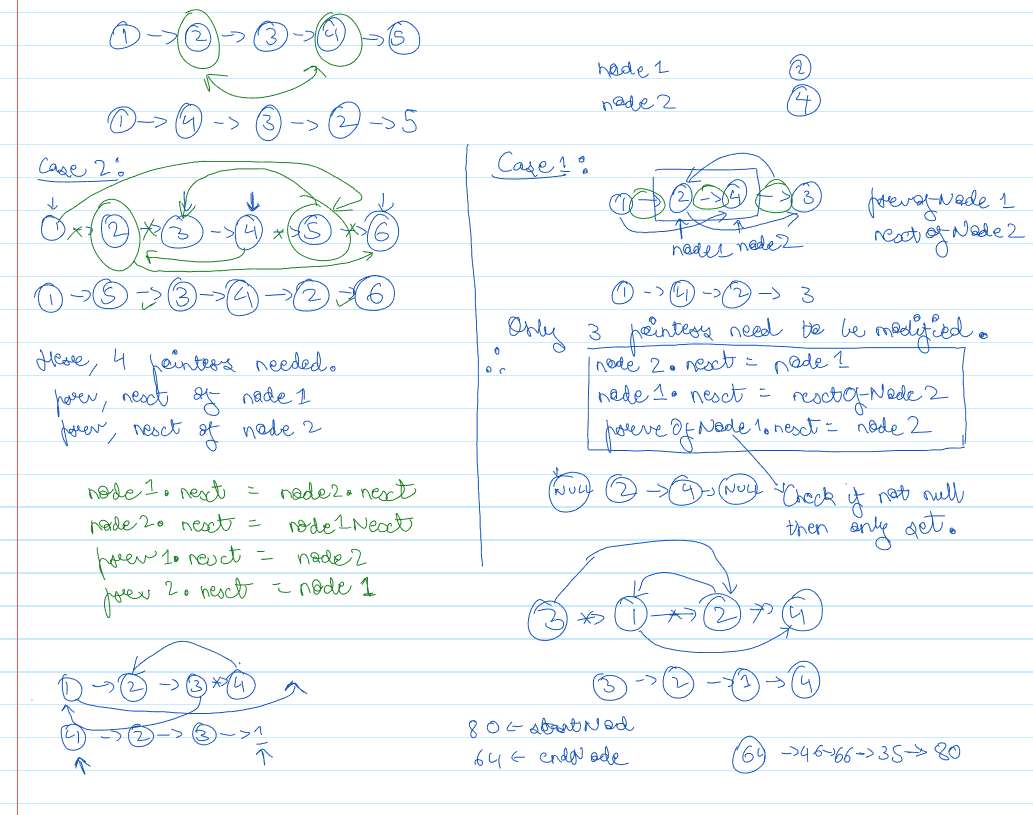 1 -> 2 -> 3 -> 4 -> 5
node 1 2
node 2 4
1 -> 4 -> 3 -> 2 -> 5
Case 2:
1 -> 2 -> 3 -> 4 -> 5 -> 6
1 -> 5 -> 3 -> 4 -> 2 -> 6
Here, 4 pointers needed.
prev, next of node 1
prev, next of node 2
node 1. next = node 2. next
node 2. next = node 1 Next
prev 1. next = node 2
prev 2. next = node 1
1 -> 2 -> 3 -> 4
4 -> 2 -> 3 -> 1
Case 1:
1 -> 2 -> 4 -> 3
prev of Node 1
next of Node 2
node 1 node 2
1 -> 4 -> 2 -> 3
Only 3 pointers need to be modified.
∴
node 2. next = node 1
node 1. next = next of Node 2
preve Of Node 1. next = node 2
NULL 2 -> 4 -> NULL
Check if not null
then only set.
3 -> 1 -> 2 -> 4
3 -> 2 -> 1 -> 4
80 <- start Nod
64 <- end Node
64 -> 46 -> 66 -> 35 -> 80